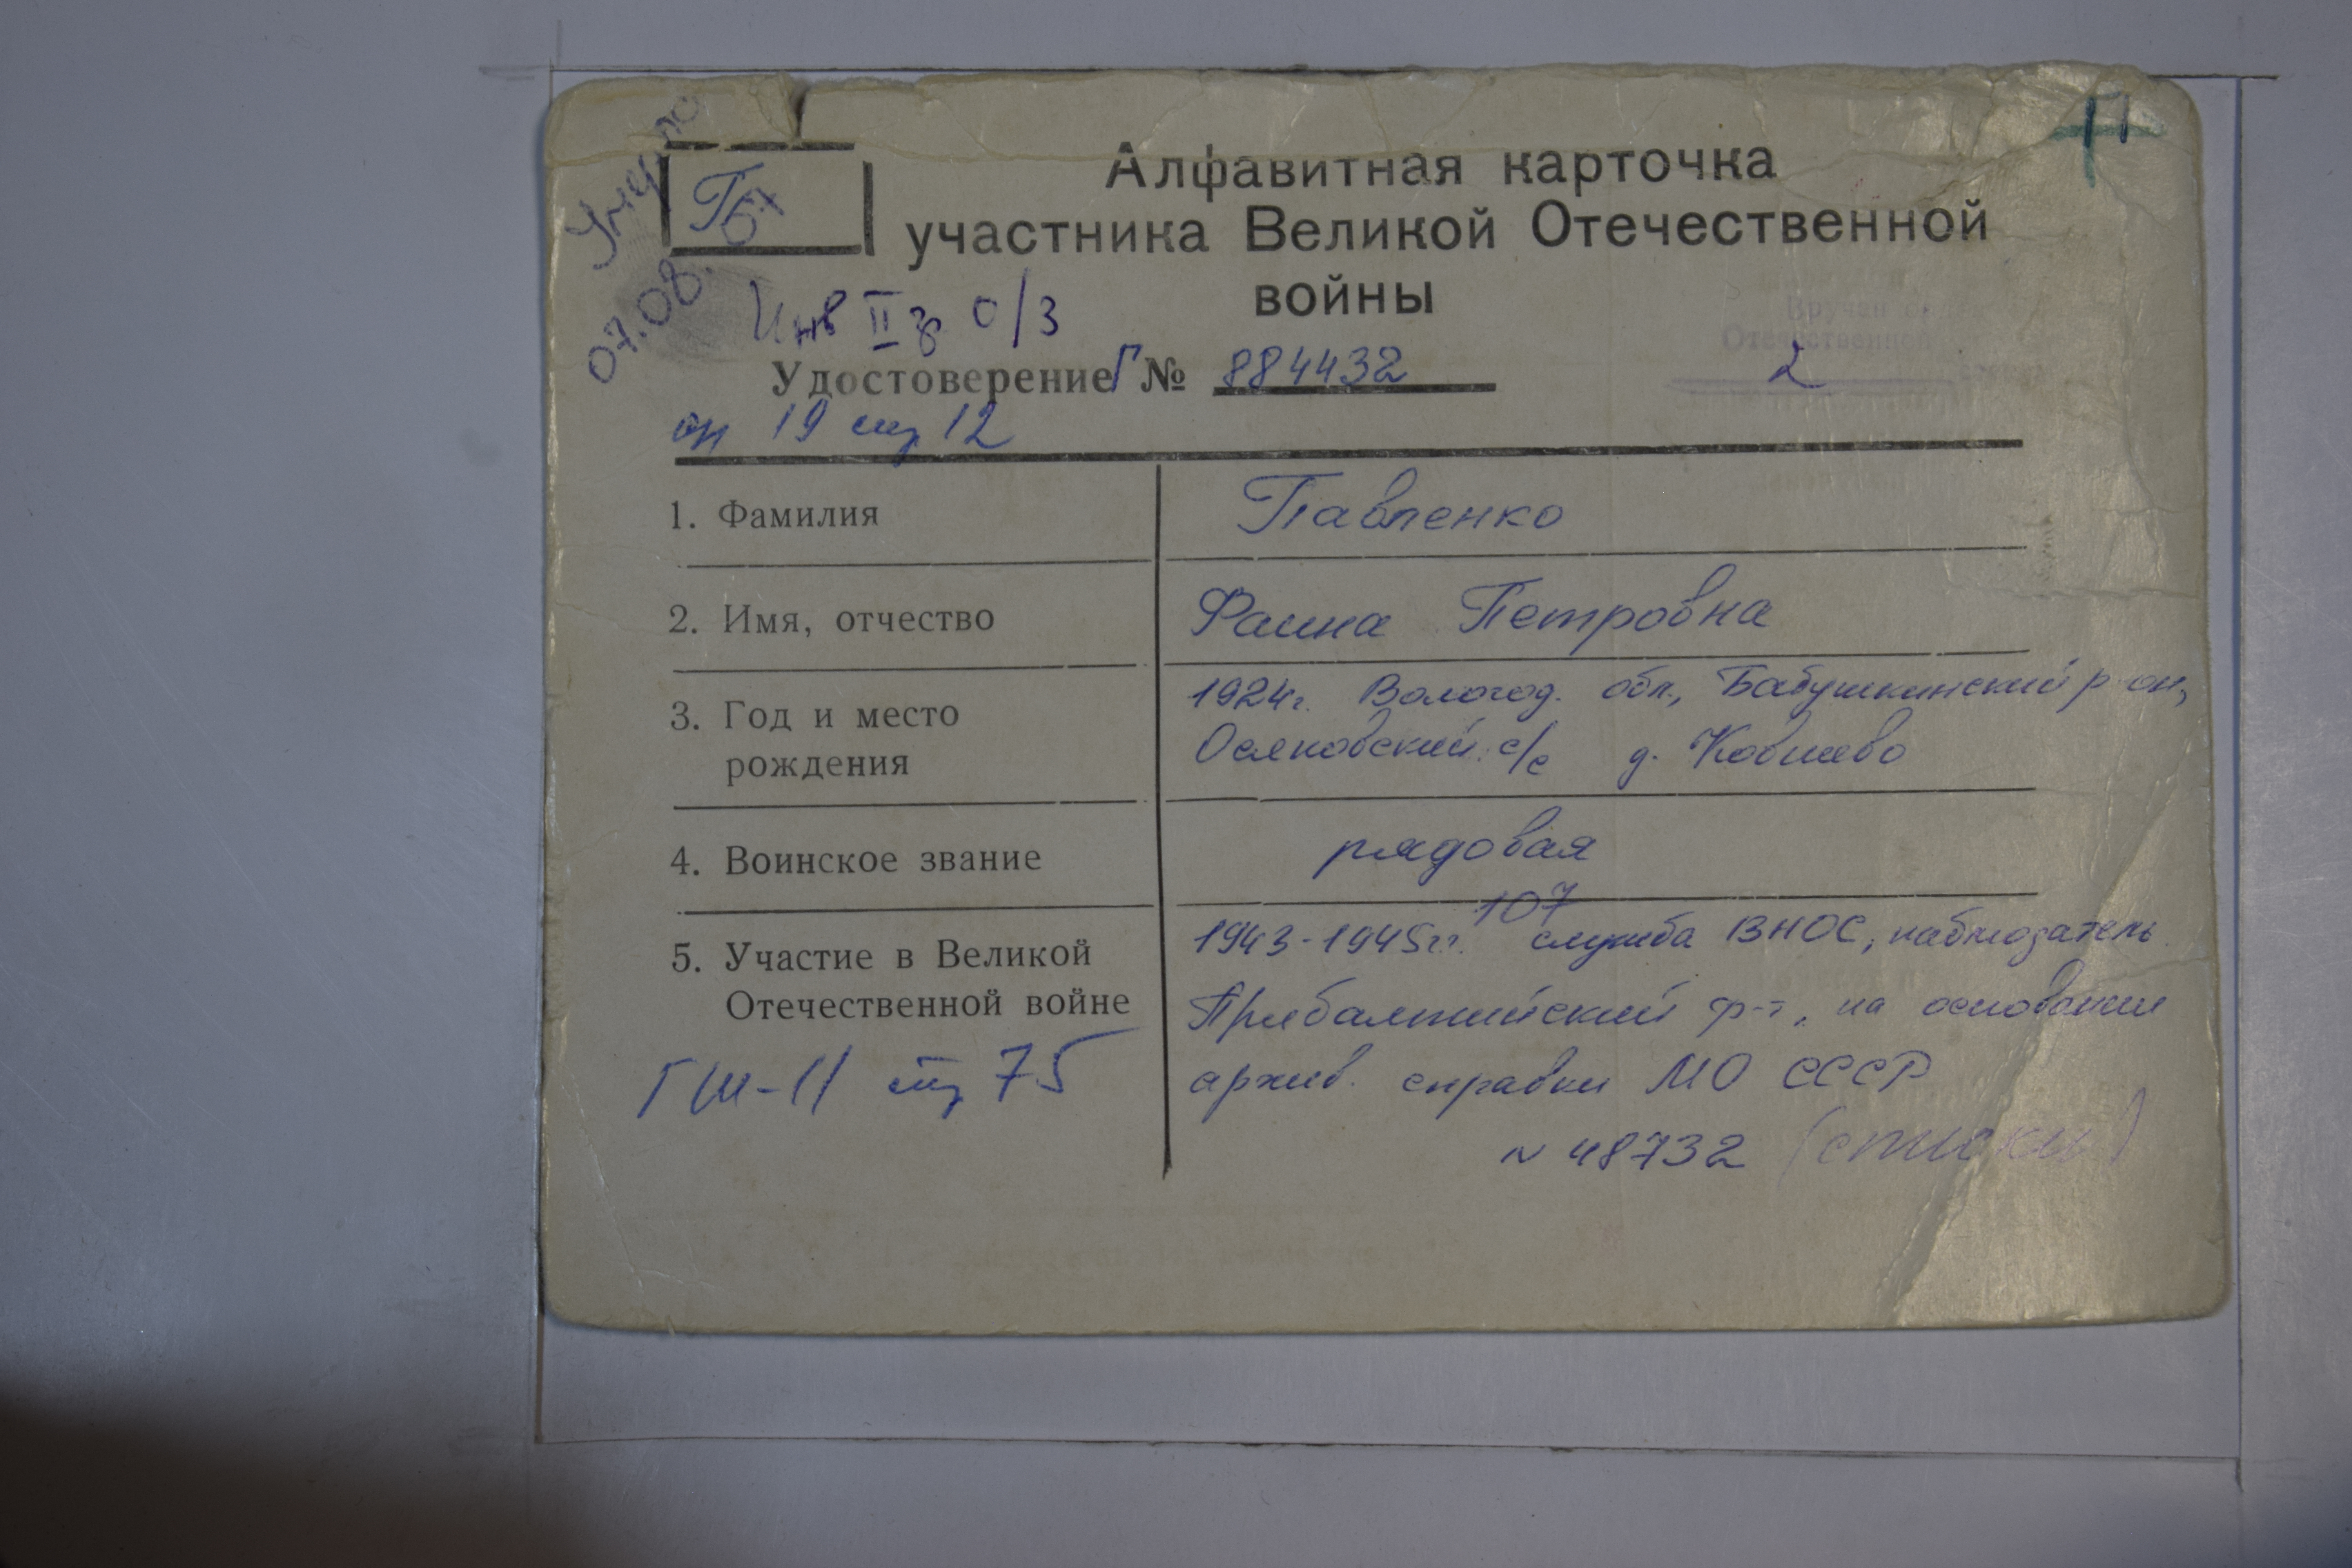 П
Умерла
07.08.
П
67
Алфавитная карточка
участника Великой Отечественной
войны
Инв II гр о/з
Удостоверение Г № 884432
Вручен
Отечественной
2
оп 19 стр 12
1. Фамилия
Павленко
2. Имя, отчество
Фаина Петровна
3. Год и место
рождения
1924г. Вологод. обл., Бабушкинский р он,
Осяковский с/с д. Ковшево
4. Воинское звание
рядовая
5. Участие в Великой
Отечественной войне
107
1943-1945гг. служба ВНОС, наблюдатель
Прибалтийский фр-т, на основании
архив. справки МО СССР
N 48732 (списки)
ГШ-11 стр 75